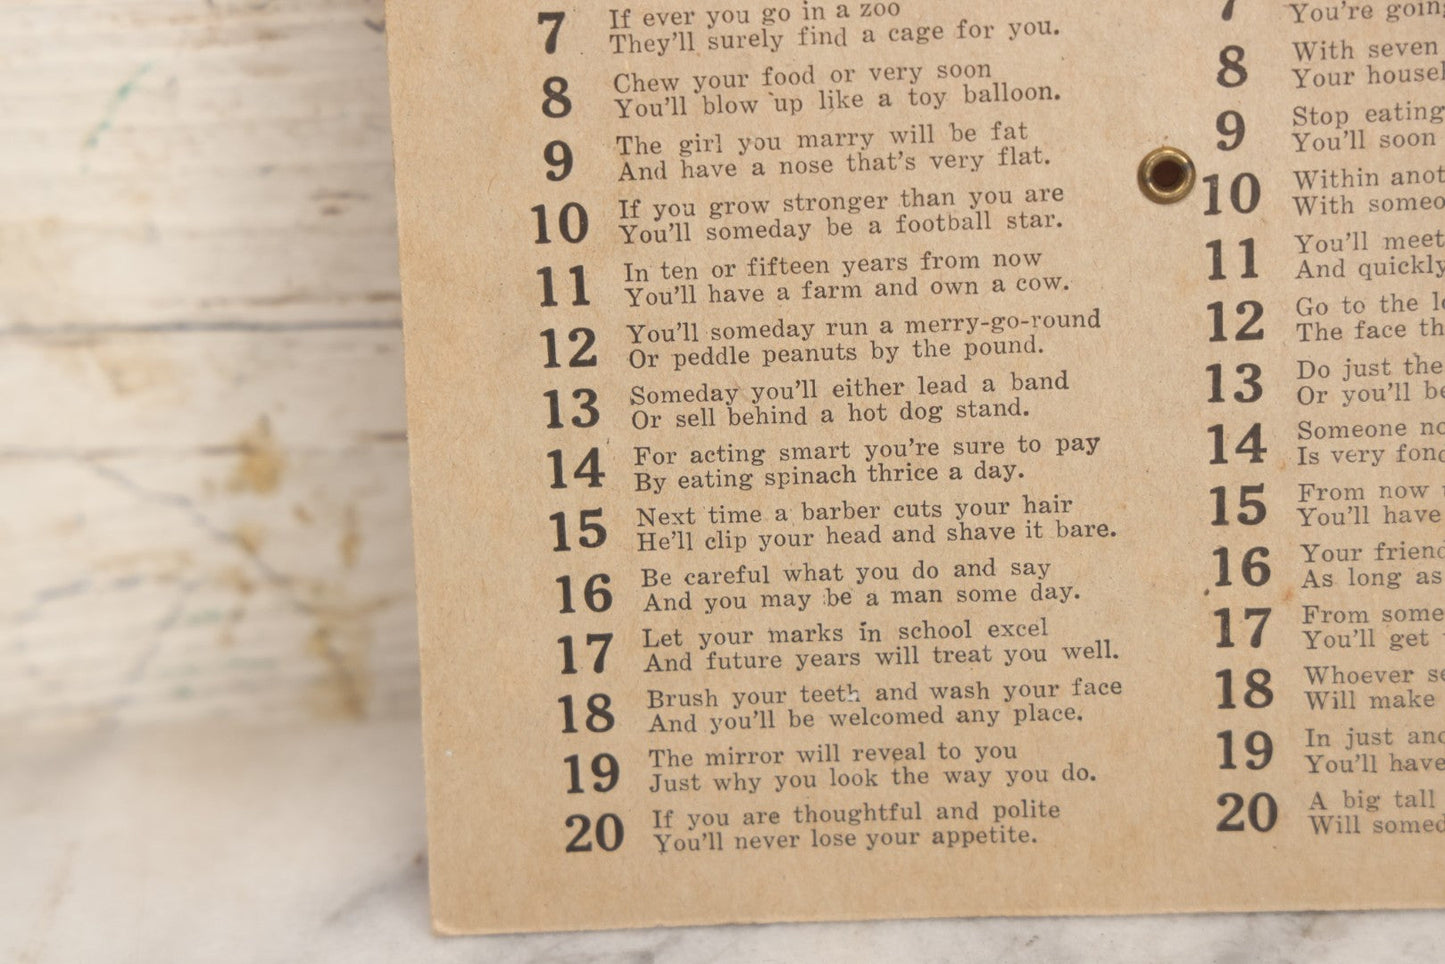 7 If ever you go in a zoo
They'll surely find a cage for you.
8 Chew your food or very soon
You'll blow up like a toy balloon.
9 The girl you marry will be fat
And have a nose that's very flat.
10 If you grow stronger than you are
You'll someday be a football star.
11 In ten or fifteen years from now
You'll have a farm and own a cow.
12 You'll someday run a merry-go-round
Or peddle peanuts by the pound.
13 Someday you'll either lead a band
Or sell behind a hot dog stand.
14 For acting smart you're sure to pay
By eating spinach thrice a day.
15 Next time a barber cuts your hair
He'll clip your head and shave it bare.
16 Be careful what you do and say
And you may be a man some day.
17 Let your marks in school excel
And future years will treat you well.
18 Brush your teeth and wash your face
And you'll be welcomed any place.
19 The mirror will reveal to you
Just why you look the way you do.
20 If you are thoughtful and polite
You'll never lose your appetite.
7 You're
8 With seven
Your
9 Stop eating
You'll soon
10 Within
With
11 You'll meet
And quickly
12 Go to the
The face
13 Do just the
Or you'll
14 Someone
Is very
15 From now
You'll have
16 Your
As long as
17 From some
You'll get
18 Whoever
Will make
19 In just
You'll have
20 A big tall
Will